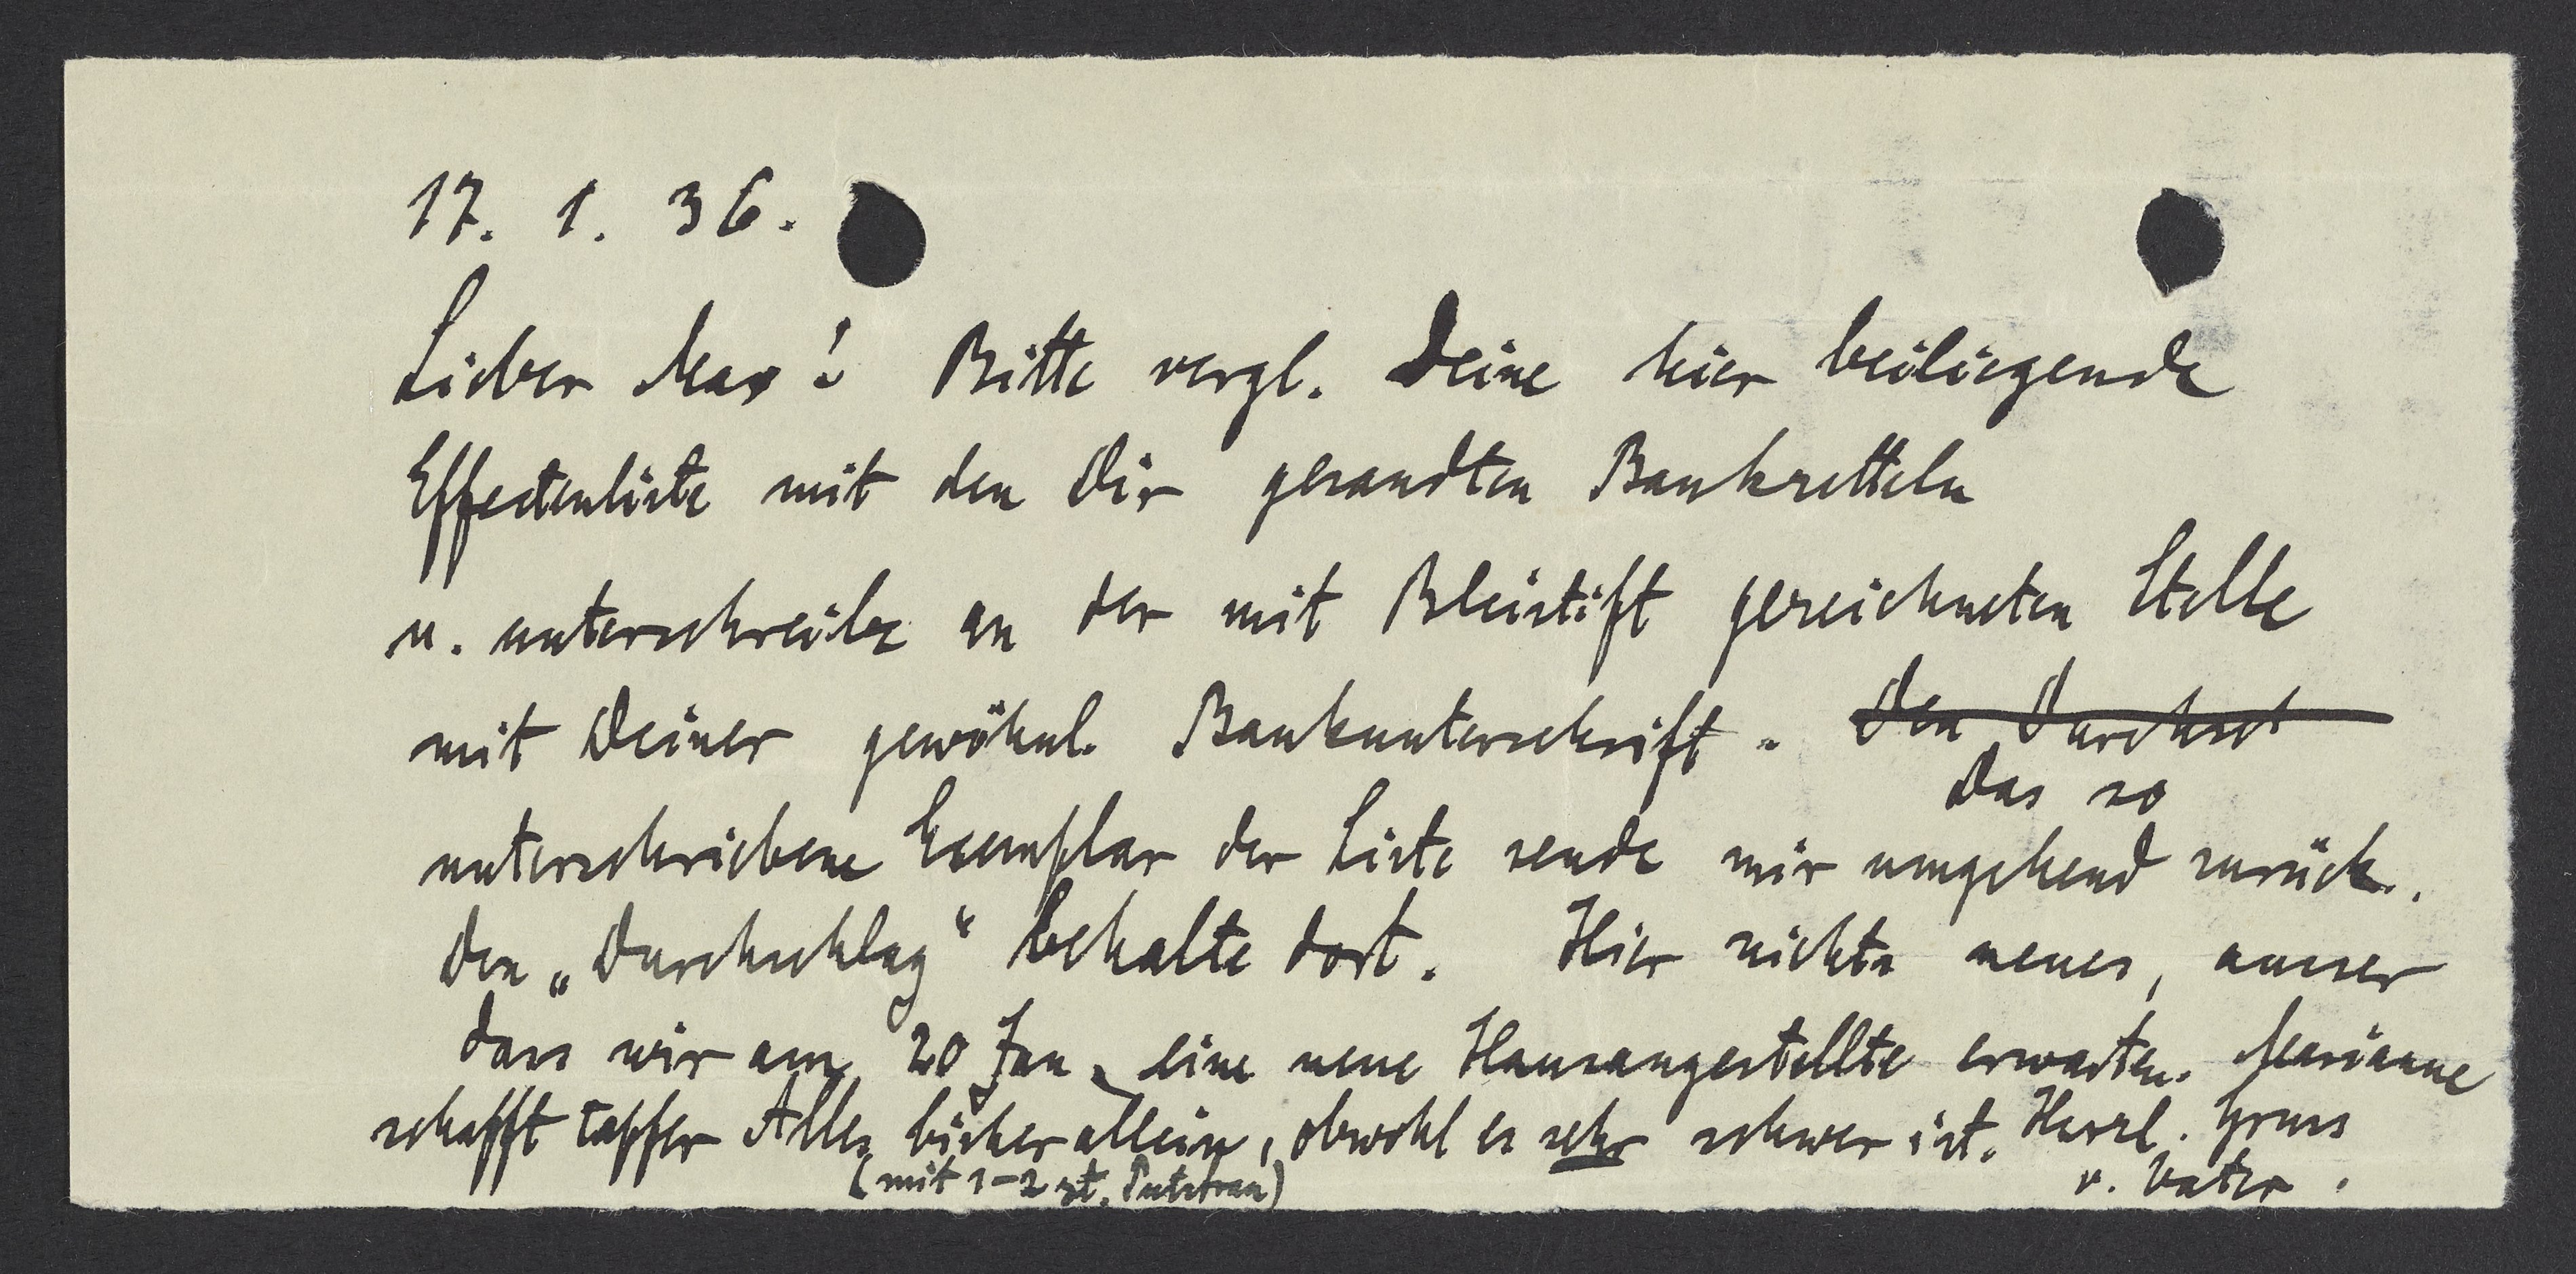 17. 1. 36.
Lieber Max! Bitte vergl. Deine hier beiliegende
Effectenliste mit den Dir gesandten Bankzetteln
u. unterschreibe an der mit Bleistift gezeichneten Stelle
mit Deiner gewöhnl. Bankunterschrift. Den Durchsch
Das so
unterschriebene Exemplar der Liste sende mir umgehend zurück.
Den „Durchschlag“ behalte dort. Hier nichts neues, ausser
dass wir am 20 Jan. eine neue Hausangestellte erwarten. Marianne
schafft tapfer Alles bisher allein, obwohl es sehr schwer ist. Herzl. Gruss
(mit 1-2 st. Putzfrau) v. Vater.